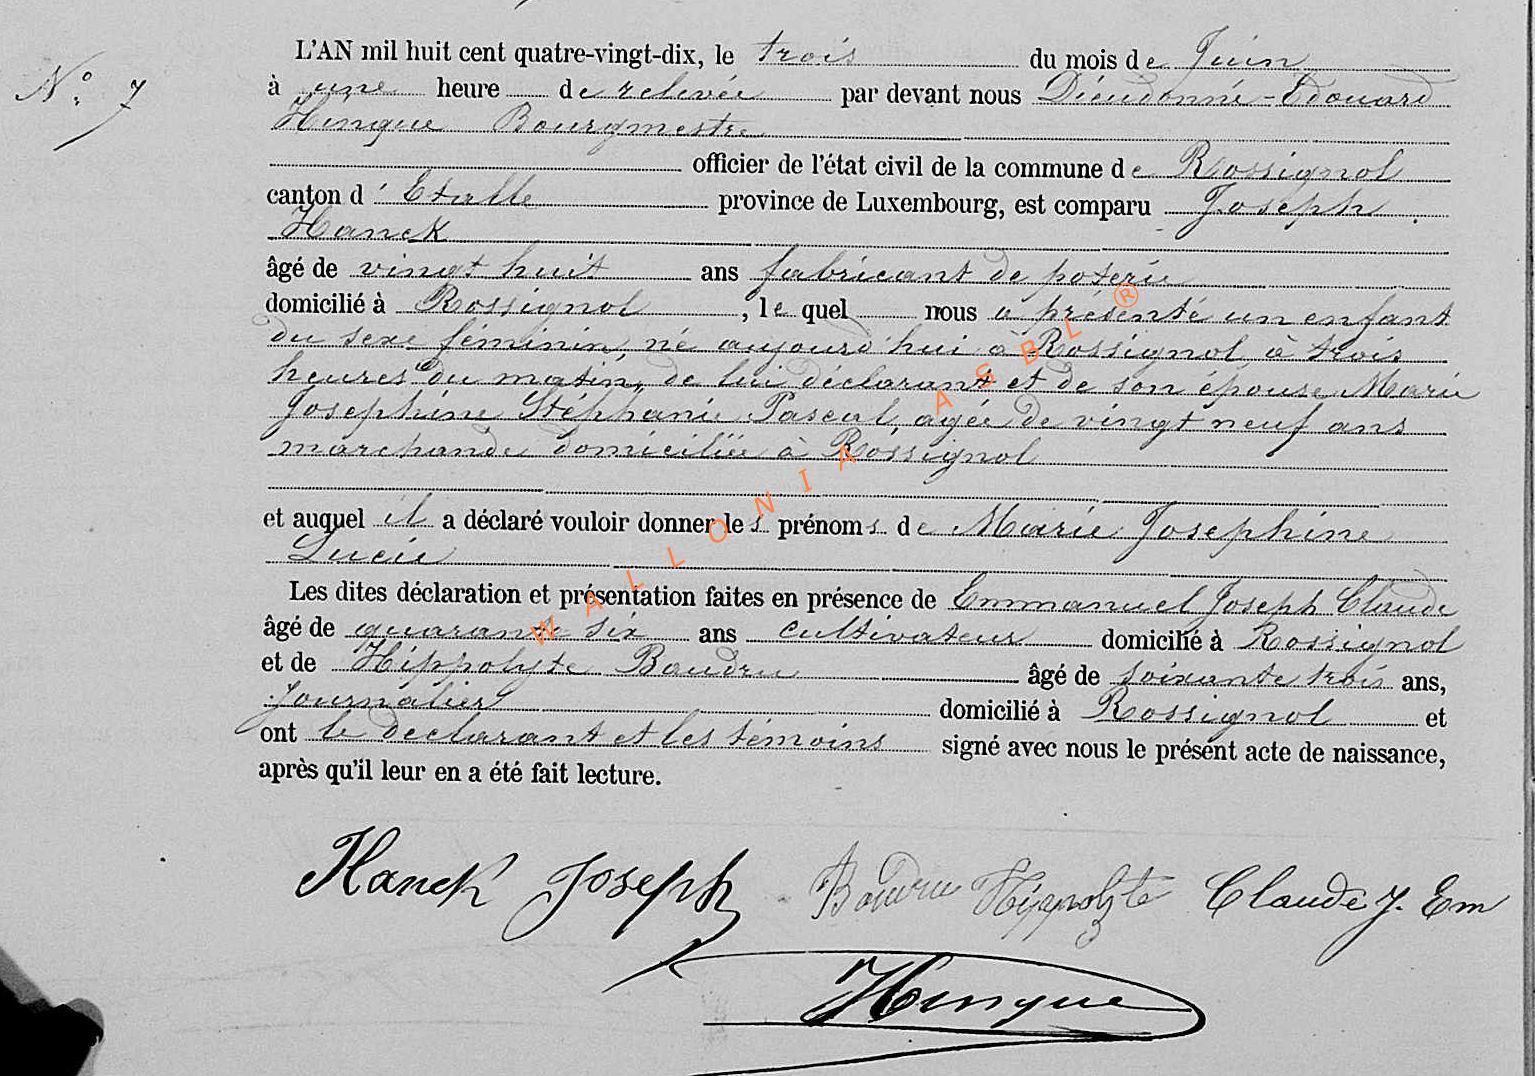 N° 7
L'AN mil huit cent quatre-vingt-dix, le trois du mois de Juin
à une heure de relevée par devant nous Dieudonné-Edouard
Hinque Bourgmestre
officier de l'état civil de la commune de Rossignol
canton d'Etalle province de Luxembourg, est comparu Joseph
Hanck
âgé de vingt huit ans fabricant de poterie
domicilié à Rossignol, le quel nous a présenté un enfant
du sexe féminin, né aujourd'hui à Rossignol à trois
heures du matin, de lui déclarant et de son épouse Marie
Josephine Stéphanie Pascal, agée de vingt neuf ans
marchande domiciliée à Rossignol
et auquel il a déclaré vouloir donner les prénoms de Marie Josephine
Lucie
Les dites déclaration et présentation faites en présence de Emmanuel Joseph Claude
âgé de quarante six ans cultivateur domicilié à Rossignol
et de Hippolyte Baudru âgé de soixante trois ans,
Journalier domicilié à Rossignol et
ont le declarant et les témoins signé avec nous le présent acte de naissance,
après qu'il leur en a été fait lecture.
Hanck Joseph Baudru Hippolyte Claude J. Em
Hinque
WALLONIA ASBL ®